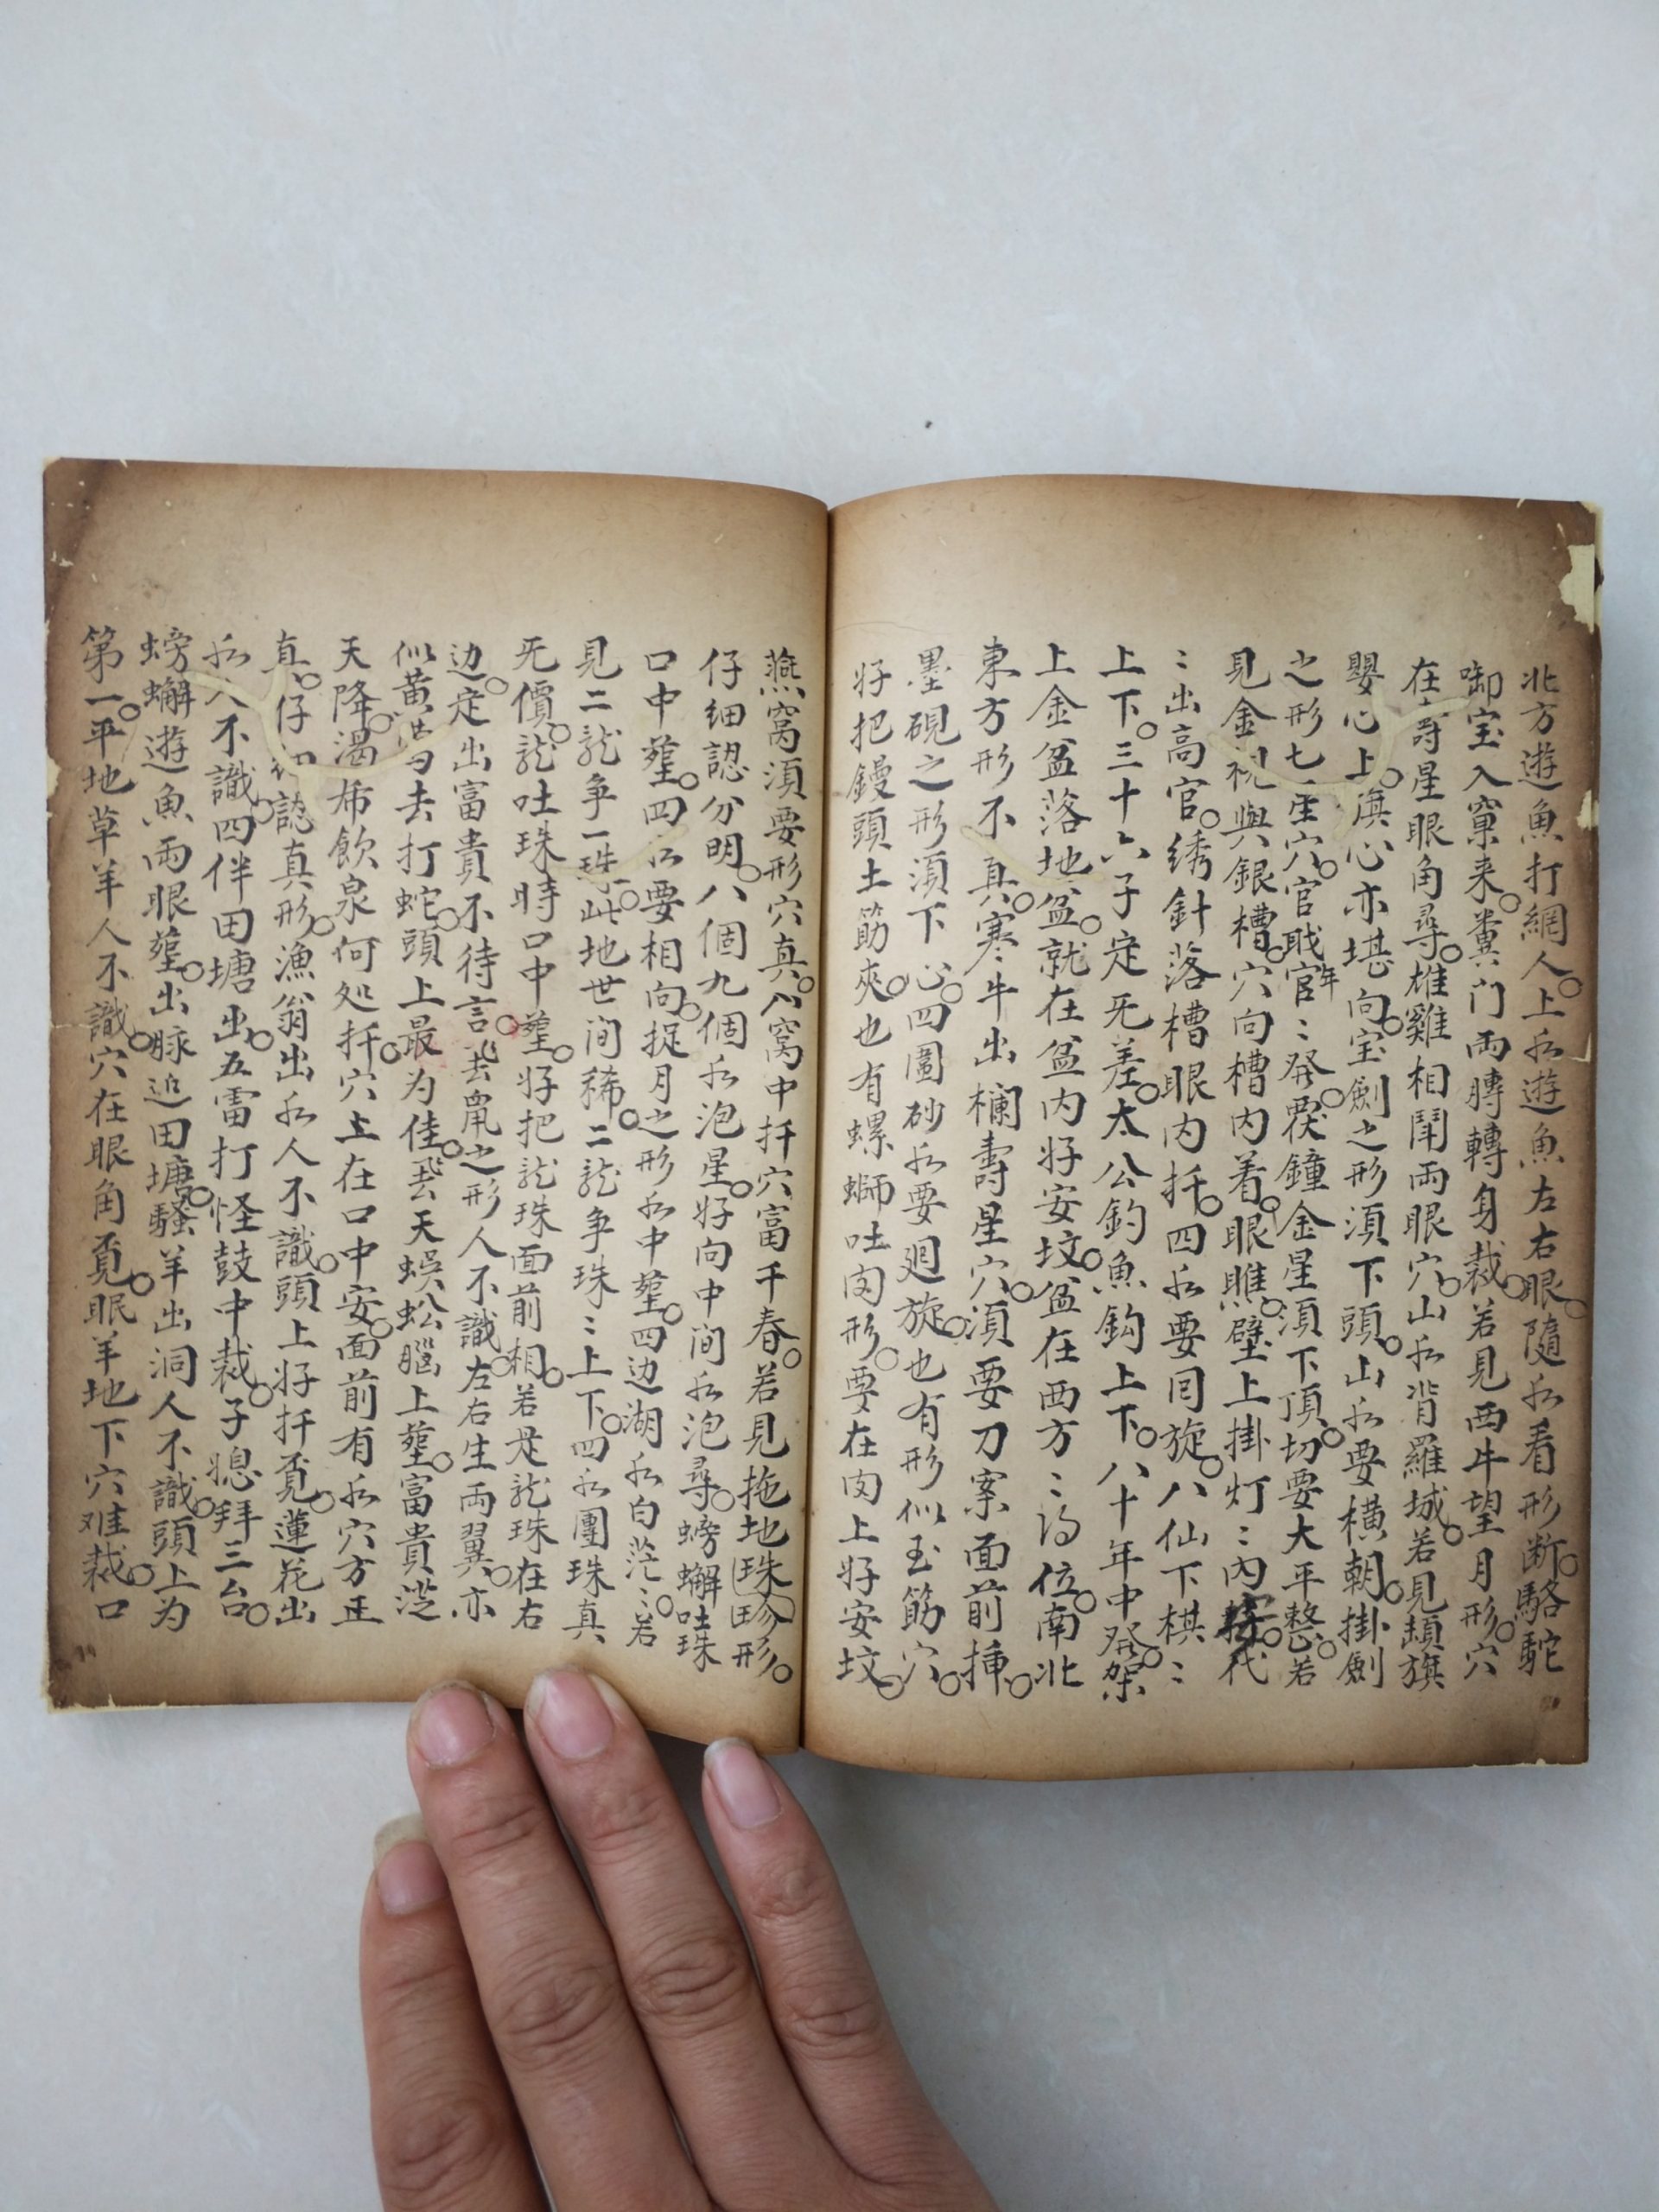 北方遊魚打網人。上水遊魚左右眼。隨水看形断。駱駝
啣宝入窠来。糞门両膊轉身裁。若見西牛望月形。穴
在壽星眼角尋。雄雞相鬥両眼穴。山水背羅城。若見頓旗
嬰心上。旗心亦堪向。宝劍之形須下頭。山水要横朝。掛劍
之形七星穴。官戢官年〻発。覆鐘金星須下頂。切要大平整。若
見金視與銀槽。穴向槽内着。眼雎。壁上掛灯〻内安。代
〻出高官。綉針落槽眼内扦。四水要囘旋。八仙下棋〻
上下。三十六子定旡差。太公釣魚鈎上下。八十年中発。架
上金盆落地盆。盆就在盆内好安坟。盆在西方〻得位。南北
東方形不真。寒牛出欄壽星穴。須要刀案面前挿。
墨硯之形須下心。四圍砂水要廻旋。也有形似玉筯穴。
好把鏝頭土筯夾。也有螺螄吐肉形。要在肉上好安坟。
燕窩須要形穴真。窩中扦穴富千春。若見拖地珠珍形。
仔细認分明。八個九個水泡星。好向中间水泡尋。螃蠏吐珠
口中𦵏。四水要相向。捉月之形水中𦵏。四边湖水白茫〻。若
見二龍争一珠。此地世间稀。二龍争珠〻上下。四水團珠真
旡價。龍吐珠時口中𦵏。好把龍珠面前相。若是龍珠在右
边。定出富貴不待言。飛鼠之形人不識。左右生両翼。亦
似黄蜂去打蛇。頭上最为佳。飛天蜈蚣腦上𦵏。富貴滢
天降。渴㡀飲泉何処扦。穴在口中安。面前有水穴方正
真。仔细認真形。漁翁出水人不識。頭上好扦覔。蓮花出
水人不識。四伴田塘出。五雷打怪鼓中裁。子媳拜三台。
螃蠏遊魚両眼𦵏。出脉近田塘。騷羊出洞人不識。頭上为
第一。平地草羊人不識。穴在眼角覔。眠羊地下穴难裁。口